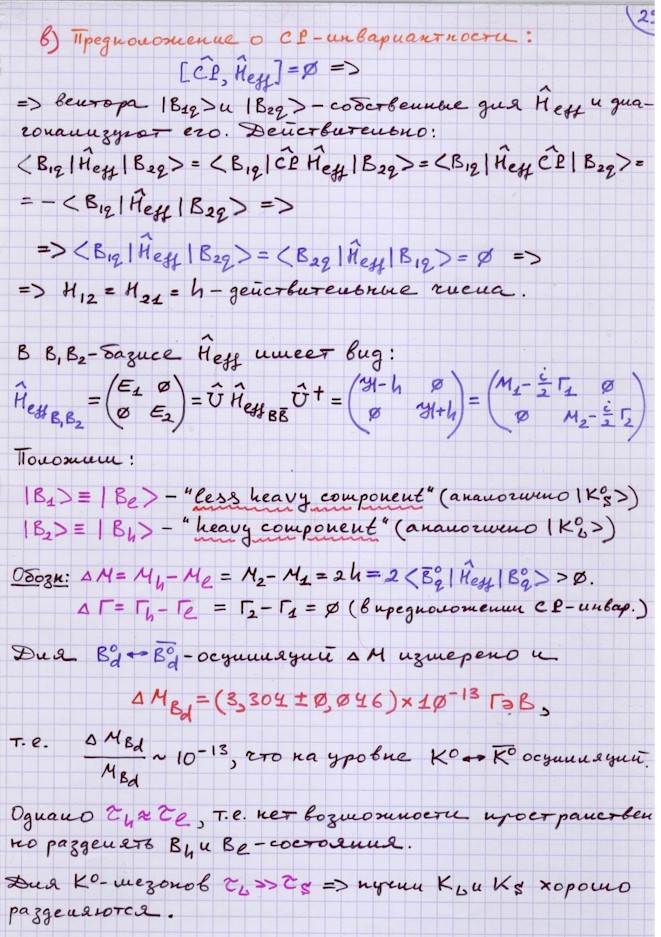 29
в) Предположение о CP-инвариантности:
[ĈP, Ĥeff] = 0 =>
=> вектора |B1q> и |B2q> – собственные для Ĥeff и диа-
гонализуют его. Действительно:
<B1q|Ĥeff|B2q> = <B1q|ĈP Ĥeff|B2q> = <B1q|Ĥeff ĈP|B2q> =
= - <B1q|Ĥeff|B2q> =>
=> <B1q|Ĥeff|B2q> = <B2q|Ĥeff|B1q> = 0 =>
=> H12 = H21 = h – действительные числа.
В B1B2-базисе Ĥeff имеет вид:
Ĥeff B1B2 = (E1 0 / 0 E2) = Û Ĥeff BB̄ Û⁺ = (ℋ-h 0 / 0 ℋ+h) = (M1 - i/2 Γ1 0 / 0 M2 - i/2 Γ2)
Положим:
|B1> ≡ |Bℓ> – "less heavy component" (аналогично |K⁰S>)
|B2> ≡ |Bh> – "heavy component" (аналогично |K⁰L>)
Обозн: ΔM = Mh - Mℓ = M2 - M1 = 2h = 2 <B̄⁰q|Ĥeff|B⁰q> > 0.
ΔΓ = Γh - Γℓ = Γ2 - Γ1 = 0 (в предположении CP-инвар.)
Для B⁰d ↔ B̄⁰d -осцилляций ΔM измерено и
ΔM Bd = (3,304 ± 0,046) × 10⁻¹³ ГэВ,
т.е. ΔM Bd / M Bd ~ 10⁻¹³, что на уровне K⁰ ↔ K̄⁰ осцилляций.
Однако τh ≈ τℓ, т.е. нет возможности пространствен
но разделять Bh и Bℓ-состояния.
Для K⁰-мезонов τL >> τS => пучки KL и KS хорошо
разделяются.